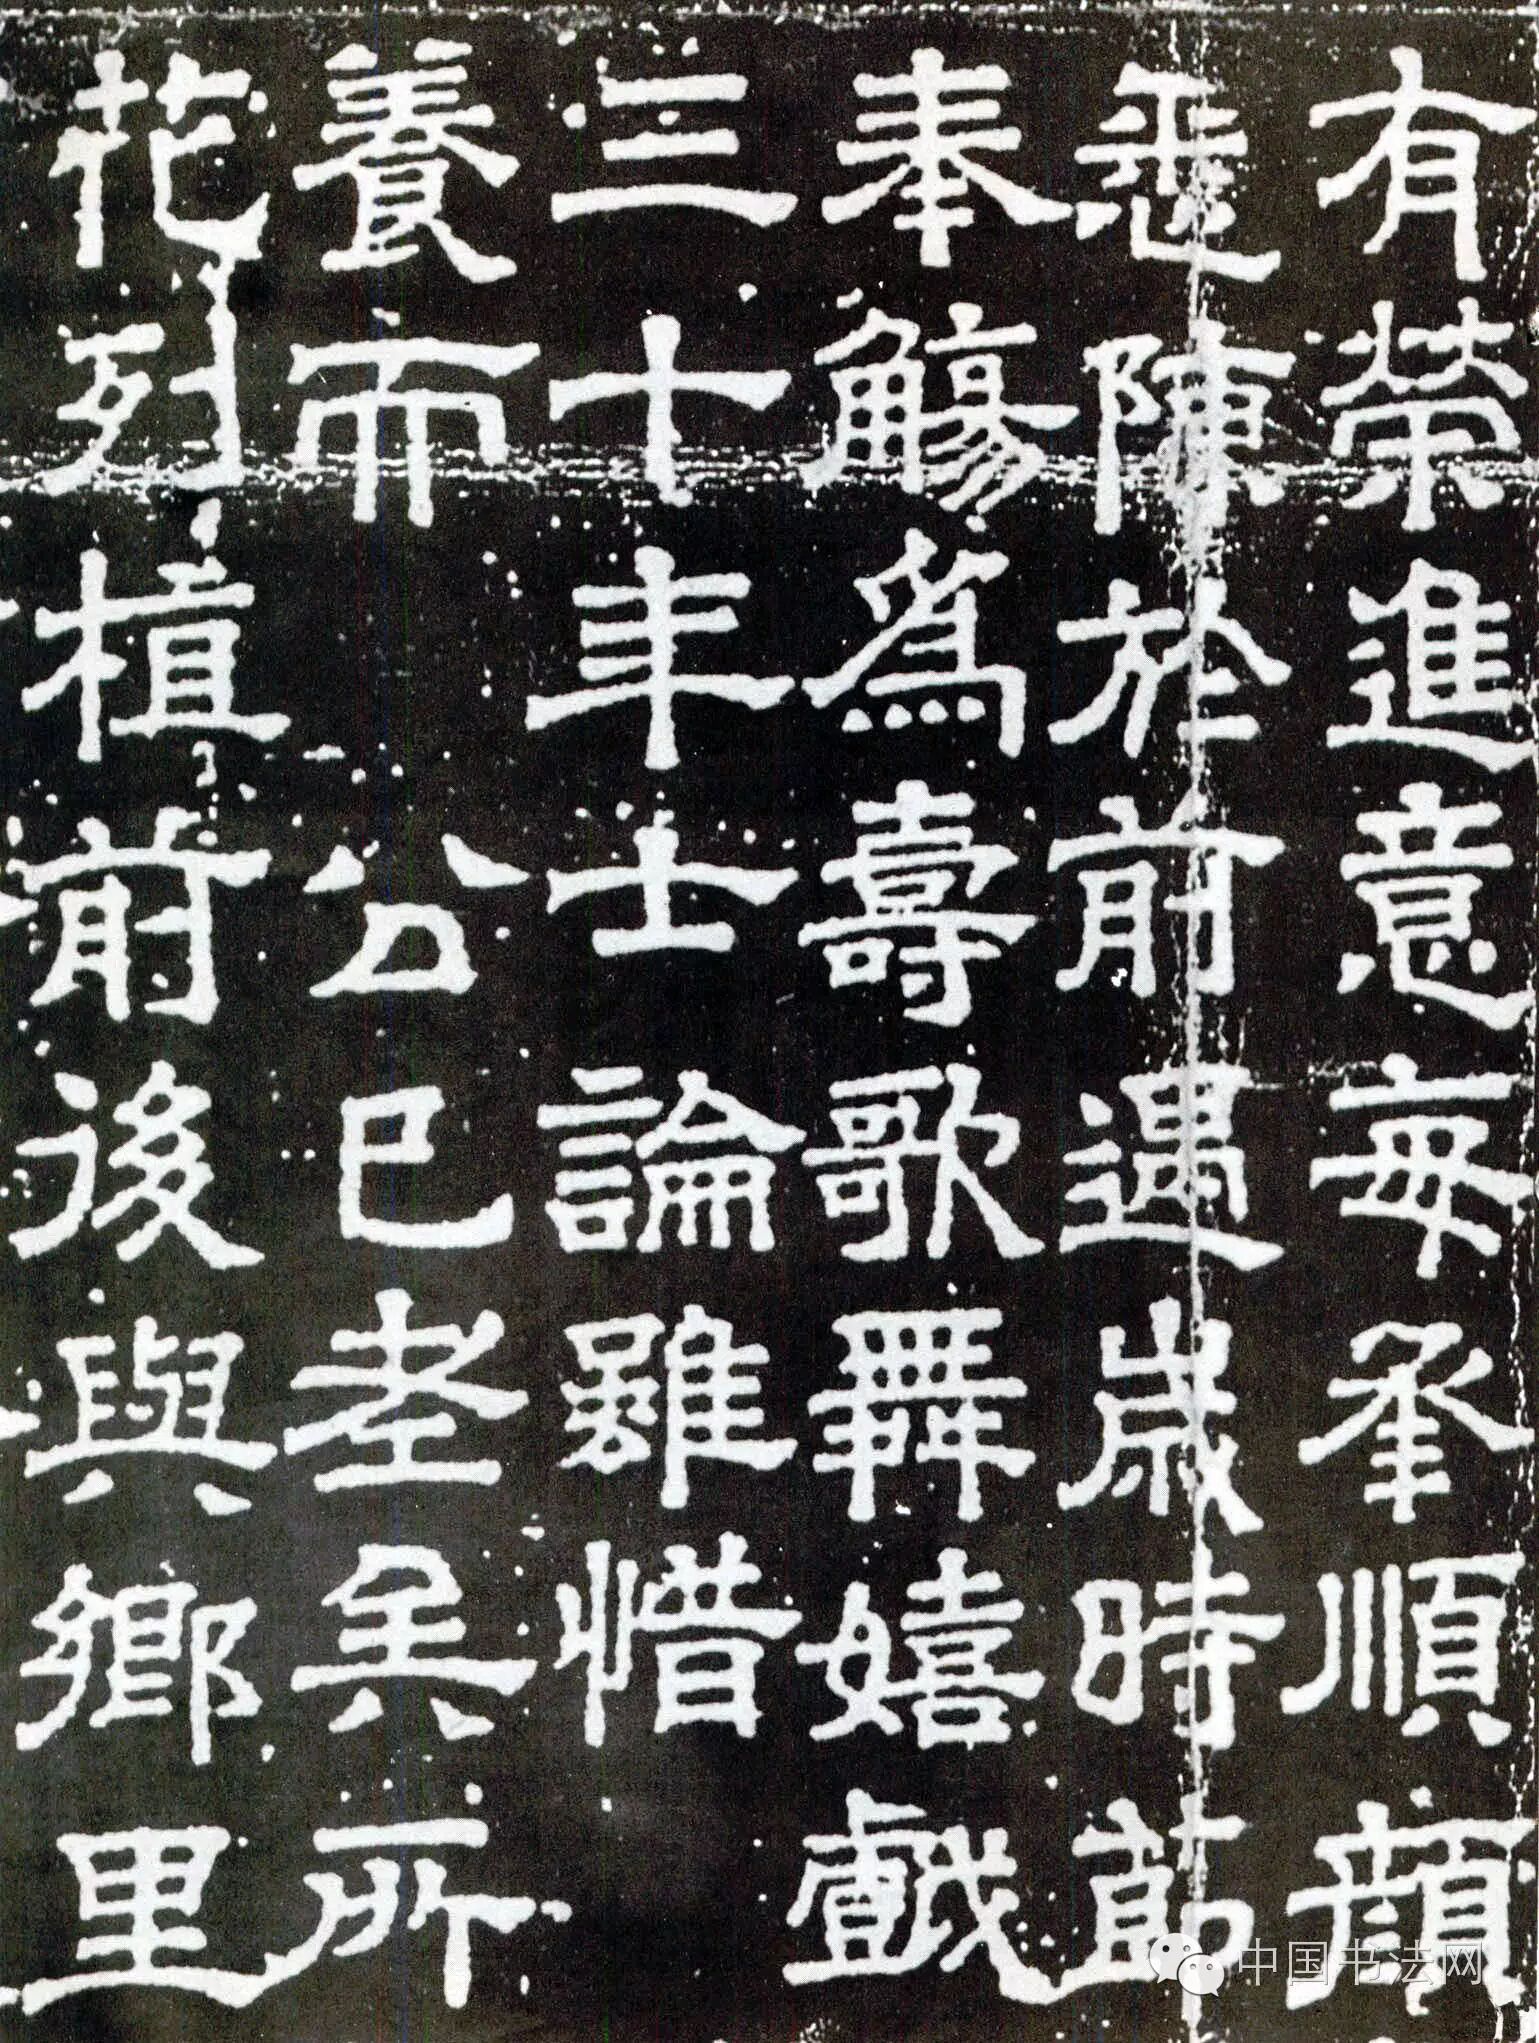 有榮進意每承順顔
悉陳於前遇歲時節
奉觴爲壽歌舞嬉戲
三十年士論雖惜
養而 公已老矣所
花列植前後與鄉里
中国书法网